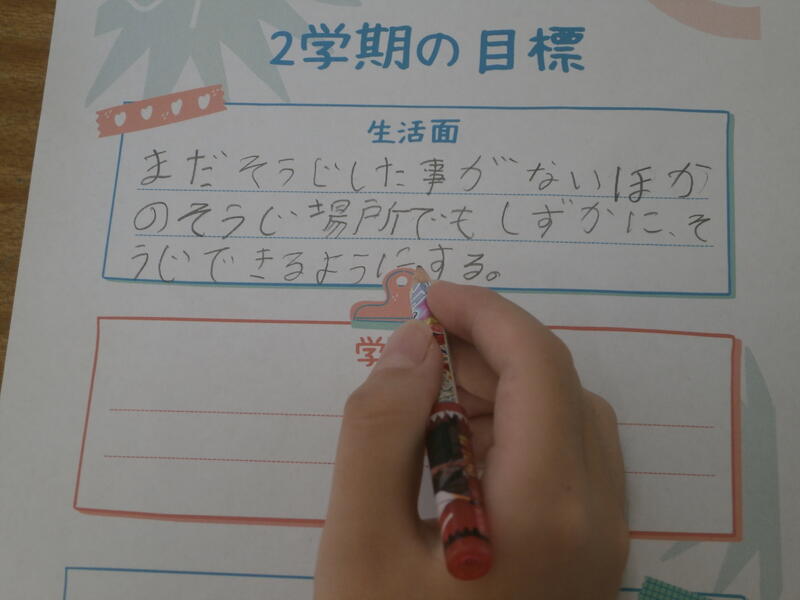 2学期の目標
生活面
まだそうじした事がないほか
のそうじ場所でもしずかに、そ
うじできるようにする。
学